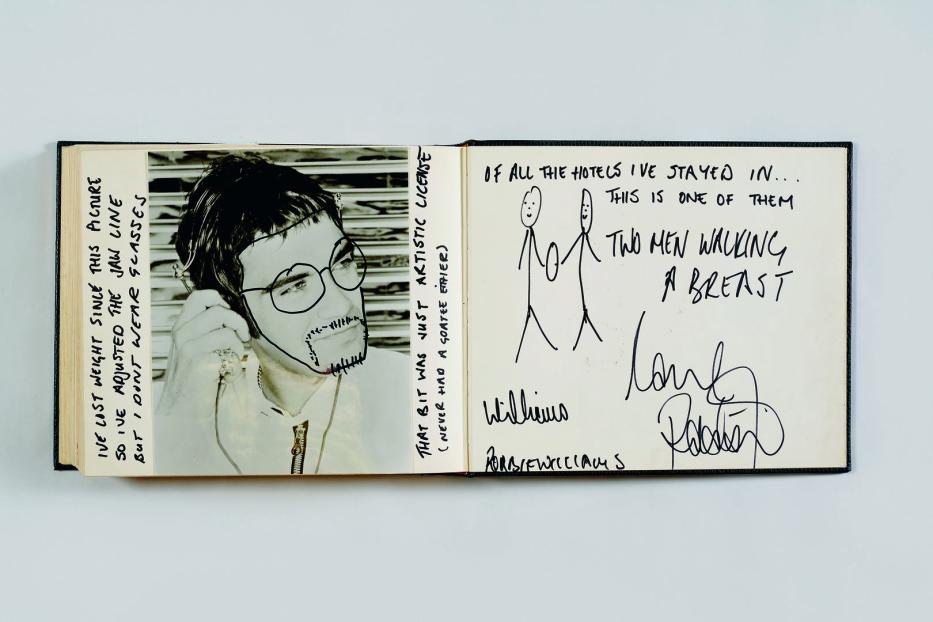 I'VE LOST WEIGHT SINCE THIS PICTURE
SO I'VE ADJUSTED THE JAW LINE
BUT I DON'T WEAR GLASSES
THAT BIT WAS JUST ARTISTIC LICENSE
(NEVER HAD A GOATEE EITHER)
OF ALL THE HOTELS I'VE STAYED IN...
THIS IS ONE OF THEM
TWO MEN WALKING
A BREAST
Williams
ROBBIE WILLIAMS